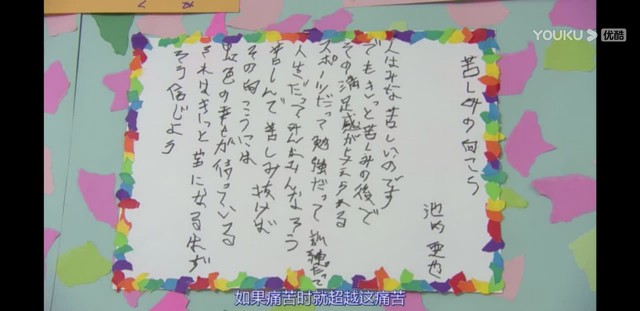 YOUKU 优酷
苦しみの向こう
池内亜也
人はみな苦しいのです
でもきっと苦しみの後で
その満足感が与えられる
スポーツだって勉強だって訓練だって
人生だってみんなみんなそう
苦しんで苦しみ抜けば
その向こうには
虹色の幸せが待っている
それはきっと宝になるはず
そう信じよう
如果痛苦时就超越这痛苦